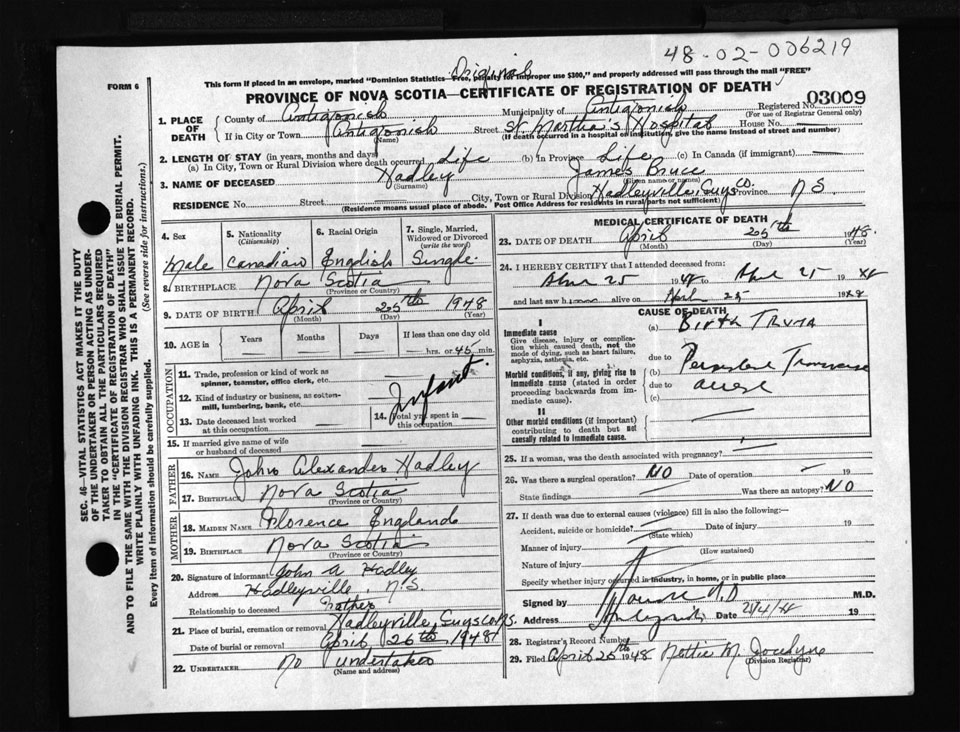 48-02-006219
Original
FORM 6
This form if placed in an envelope, marked "Dominion Statistics—Free, penalty for improper use $300," and properly addressed will pass through the mail "FREE"
PROVINCE OF NOVA SCOTIA—CERTIFICATE OF REGISTRATION OF DEATH
Registered No. 03009
(For use of Registrar General only)
1. PLACE OF DEATH
County of Antigonish Municipality of Antigonish
If in City or Town Antigonish Street St. Martha's Hospital House No. —
(Name) (If death occurred in a hospital or institution, give the name instead of street and number)
2. LENGTH OF STAY (in years, months and days)
(a) In City, Town or Rural Division where death occurred Life (b) In Province Life (c) In Canada (if immigrant) —
3. NAME OF DECEASED Hadley James Bruce
(Surname) (Given name or names)
RESIDENCE No. Street City, Town or Rural Division Hadleyville, Guys Co. Province N S.
(Residence means usual place of abode. Post Office Address for residents in rural parts not sufficient)
4. Sex
5. Nationality (Citizenship)
6. Racial Origin
7. Single, Married, Widowed or Divorced (write the word)
Male Canadian English Single
8. BIRTHPLACE Nova Scotia
(Province or Country)
9. DATE OF BIRTH April 25th 1948
(Month) (Day) (Year)
10. AGE in Years Months Days If less than one day old
hrs. or 45 min.
OCCUPATION
11. Trade, profession or kind of work as
spinner, teamster, office clerk, etc.
12. Kind of industry or business, as cotton-
mill, lumbering, bank, etc.
Infant.
13. Date deceased last worked
at this occupation
14. Total yrs. spent in
this occupation
15. If married give name of wife
or husband of deceased
FATHER
16. NAME John Alexander Hadley
17. BIRTHPLACE Nova Scotia
(Province or Country)
MOTHER
18. MAIDEN NAME Florence England
19. BIRTHPLACE Nova Scotia
(Province or Country)
20. Signature of informant John A Hadley
Address Hadleyville, N.S.
Relationship to deceased Father
21. Place of burial, cremation or removal Hadleyville, Guys Co N.S.
Date of burial or removal April 26th 1948
22. UNDERTAKER No undertaker
(Name and address)
MEDICAL CERTIFICATE OF DEATH
23. DATE OF DEATH April 25th 1948
(Month) (Day) (Year)
24. I HEREBY CERTIFY that I attended deceased from
April 25 1948 to April 25 19
and last saw h alive on April 25 19
CAUSE OF DEATH
I
Immediate cause
Give disease, injury or complication which caused death, not the
mode of dying, such as heart failure,
asphyxia, asthenia, etc.
(a) Birth
due to
Morbid conditions, if any, giving rise to
immediate cause (stated in order
proceeding backwards from immediate cause).
(b) Persistent Transverse
due to
(c)
II
Other morbid conditions (if important)
contributing to death but not
causally related to immediate cause.
25. If a woman, was the death associated with pregnancy? —
26. Was there a surgical operation? NO Date of operation 19
State findings Was there an autopsy? NO
27. If death was due to external causes (violence) fill in also the following:—
Accident, suicide or homicide? Date of injury 19
(State which)
Manner of injury
(How sustained)
Nature of injury
Specify whether injury occurred in industry, in home, or in public place
Signed by M.D M.D.
Address Antigonish Date 19
28. Registrar's Record Number
29. Filed April 26th 1948 Nettie M.
(Division Registrar)
SEC. 46—VITAL STATISTICS ACT MAKES IT THE DUTY
OF THE UNDERTAKER OR PERSON ACTING AS UNDER-
TAKER TO OBTAIN ALL THE PARTICULARS REQUIRED
IN THE "CERTIFICATE OF REGISTRATION OF DEATH" AND
TO FILE THE SAME WITH THE DIVISION REGISTRAR WHO SHALL ISSUE THE BURIAL PERMIT.
WRITE PLAINLY WITH UNFADING INK. THIS IS A PERMANENT RECORD.
Every item of information should be carefully supplied. (See reverse side for instructions.)